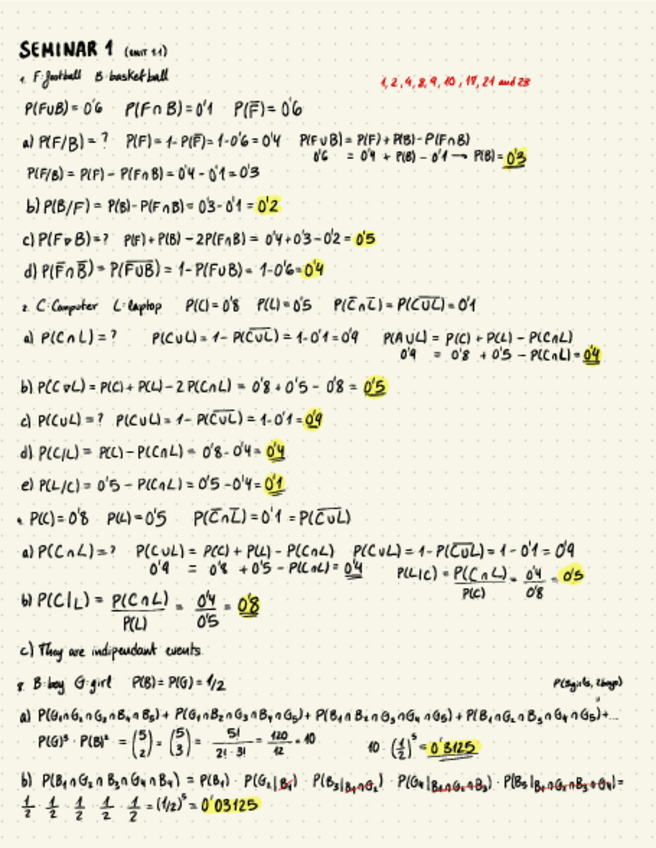 SEMINAR 1 (UNIT 1.1)
1. F: football B: basketball
1, 2, 4, 8, 9, 10, 17, 21 and 23
P(F∪B) = 0'6 P(F∩B) = 0'1 P(F̅) = 0'6
a) P(F/B) = ? P(F) = 1-P(F̅) = 1-0'6 = 0'4 P(F∪B) = P(F) + P(B) - P(F∩B)
0'6 = 0'4 + P(B) - 0'1 → P(B) = 0'3
P(F/B) = P(F) - P(F∩B) = 0'4 - 0'1 = 0'3
b) P(B/F) = P(B) - P(F∩B) = 0'3 - 0'1 = 0'2
c) P(F∇B) = ? P(F) + P(B) - 2P(F∩B) = 0'4 + 0'3 - 0'2 = 0'5
d) P(F̅∩B̅) = P(F̅∪̅B̅) = 1 - P(F∪B) = 1-0'6 = 0'4
2. C: Computer L: laptop P(C) = 0'8 P(L) = 0'5 P(C̅∩L̅) = P(C̅∪̅L̅) = 0'1
a) P(C∩L) = ? P(C∪L) = 1 - P(C̅∪̅L̅) = 1-0'1 = 0'9 P(A∪L) = P(C) + P(L) - P(C∩L)
0'9 = 0'8 + 0'5 - P(C∩L) = 0'4
b) P(C∇L) = P(C) + P(L) - 2P(C∩L) = 0'8 + 0'5 - 0'8 = 0'5
c) P(C∪L) = ? P(C∪L) = 1 - P(C̅∪̅L̅) = 1-0'1 = 0'9
d) P(C/L) = P(C) - P(C∩L) = 0'8 - 0'4 = 0'4
e) P(L/C) = 0'5 - P(C∩L) = 0'5 - 0'4 = 0'1
4. P(C) = 0'8 P(L) = 0'5 P(C̅∩L̅) = 0'1 = P(C̅∪̅L̅)
a) P(C∩L) = ? P(C∪L) = P(C) + P(L) - P(C∩L) P(C∪L) = 1 - P(C̅∪̅L̅) = 1 - 0'1 = 0'9
0'9 = 0'8 + 0'5 - P(C∩L) = 0'4 P(L|C) = P(C∩L)/P(C) = 0'4/0'8 = 0'5
b) P(C|L) = P(C∩L)/P(L) = 0'4/0'5 = 0'8
c) They are indipendant events.
8. B: boy G: girl P(B) = P(G) = 1/2
P(3girls, 2boys)
a) P(G₁∩G₂∩G₃∩B₄∩B₅) + P(G₁∩B₂∩G₃∩B₄∩G₅) + P(B₁∩B₂∩G₃∩G₄∩G₅) + P(B₁∩G₂∩B₃∩G₄∩G₅) + ...
P(G)³ · P(B)² = (5 2) = (5 3) = 5!/2!·3! = 120/12 = 10 10 · (1/2)⁵ = 0'3125
b) P(B₁∩G₂∩B₃∩G₄∩B₄) = P(B₁) · P(G₂|B₁) · P(B₃|B₁∩G₂) · P(G₄|B₁∩G₂∩B₃) · P(B₅|B₁∩G₂∩B₃∩G₄) =
1/2 · 1/2 · 1/2 · 1/2 · 1/2 = (1/2)⁵ = 0'03125